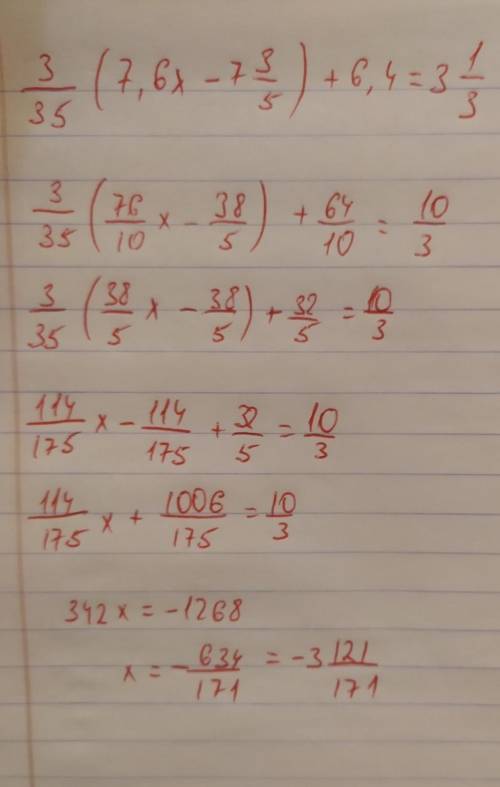 3/35 (7,6x - 7 3/5) + 6,4 = 3 1/3
3/35 (76/10 x - 38/5) + 64/10 = 10/3
3/35 (38/5 x - 38/5) + 32/5 = 10/3
114/175 x - 114/175 + 32/5 = 10/3
114/175 x + 1006/175 = 10/3
342x = -1268
x = - 634/171 = -3 121/171